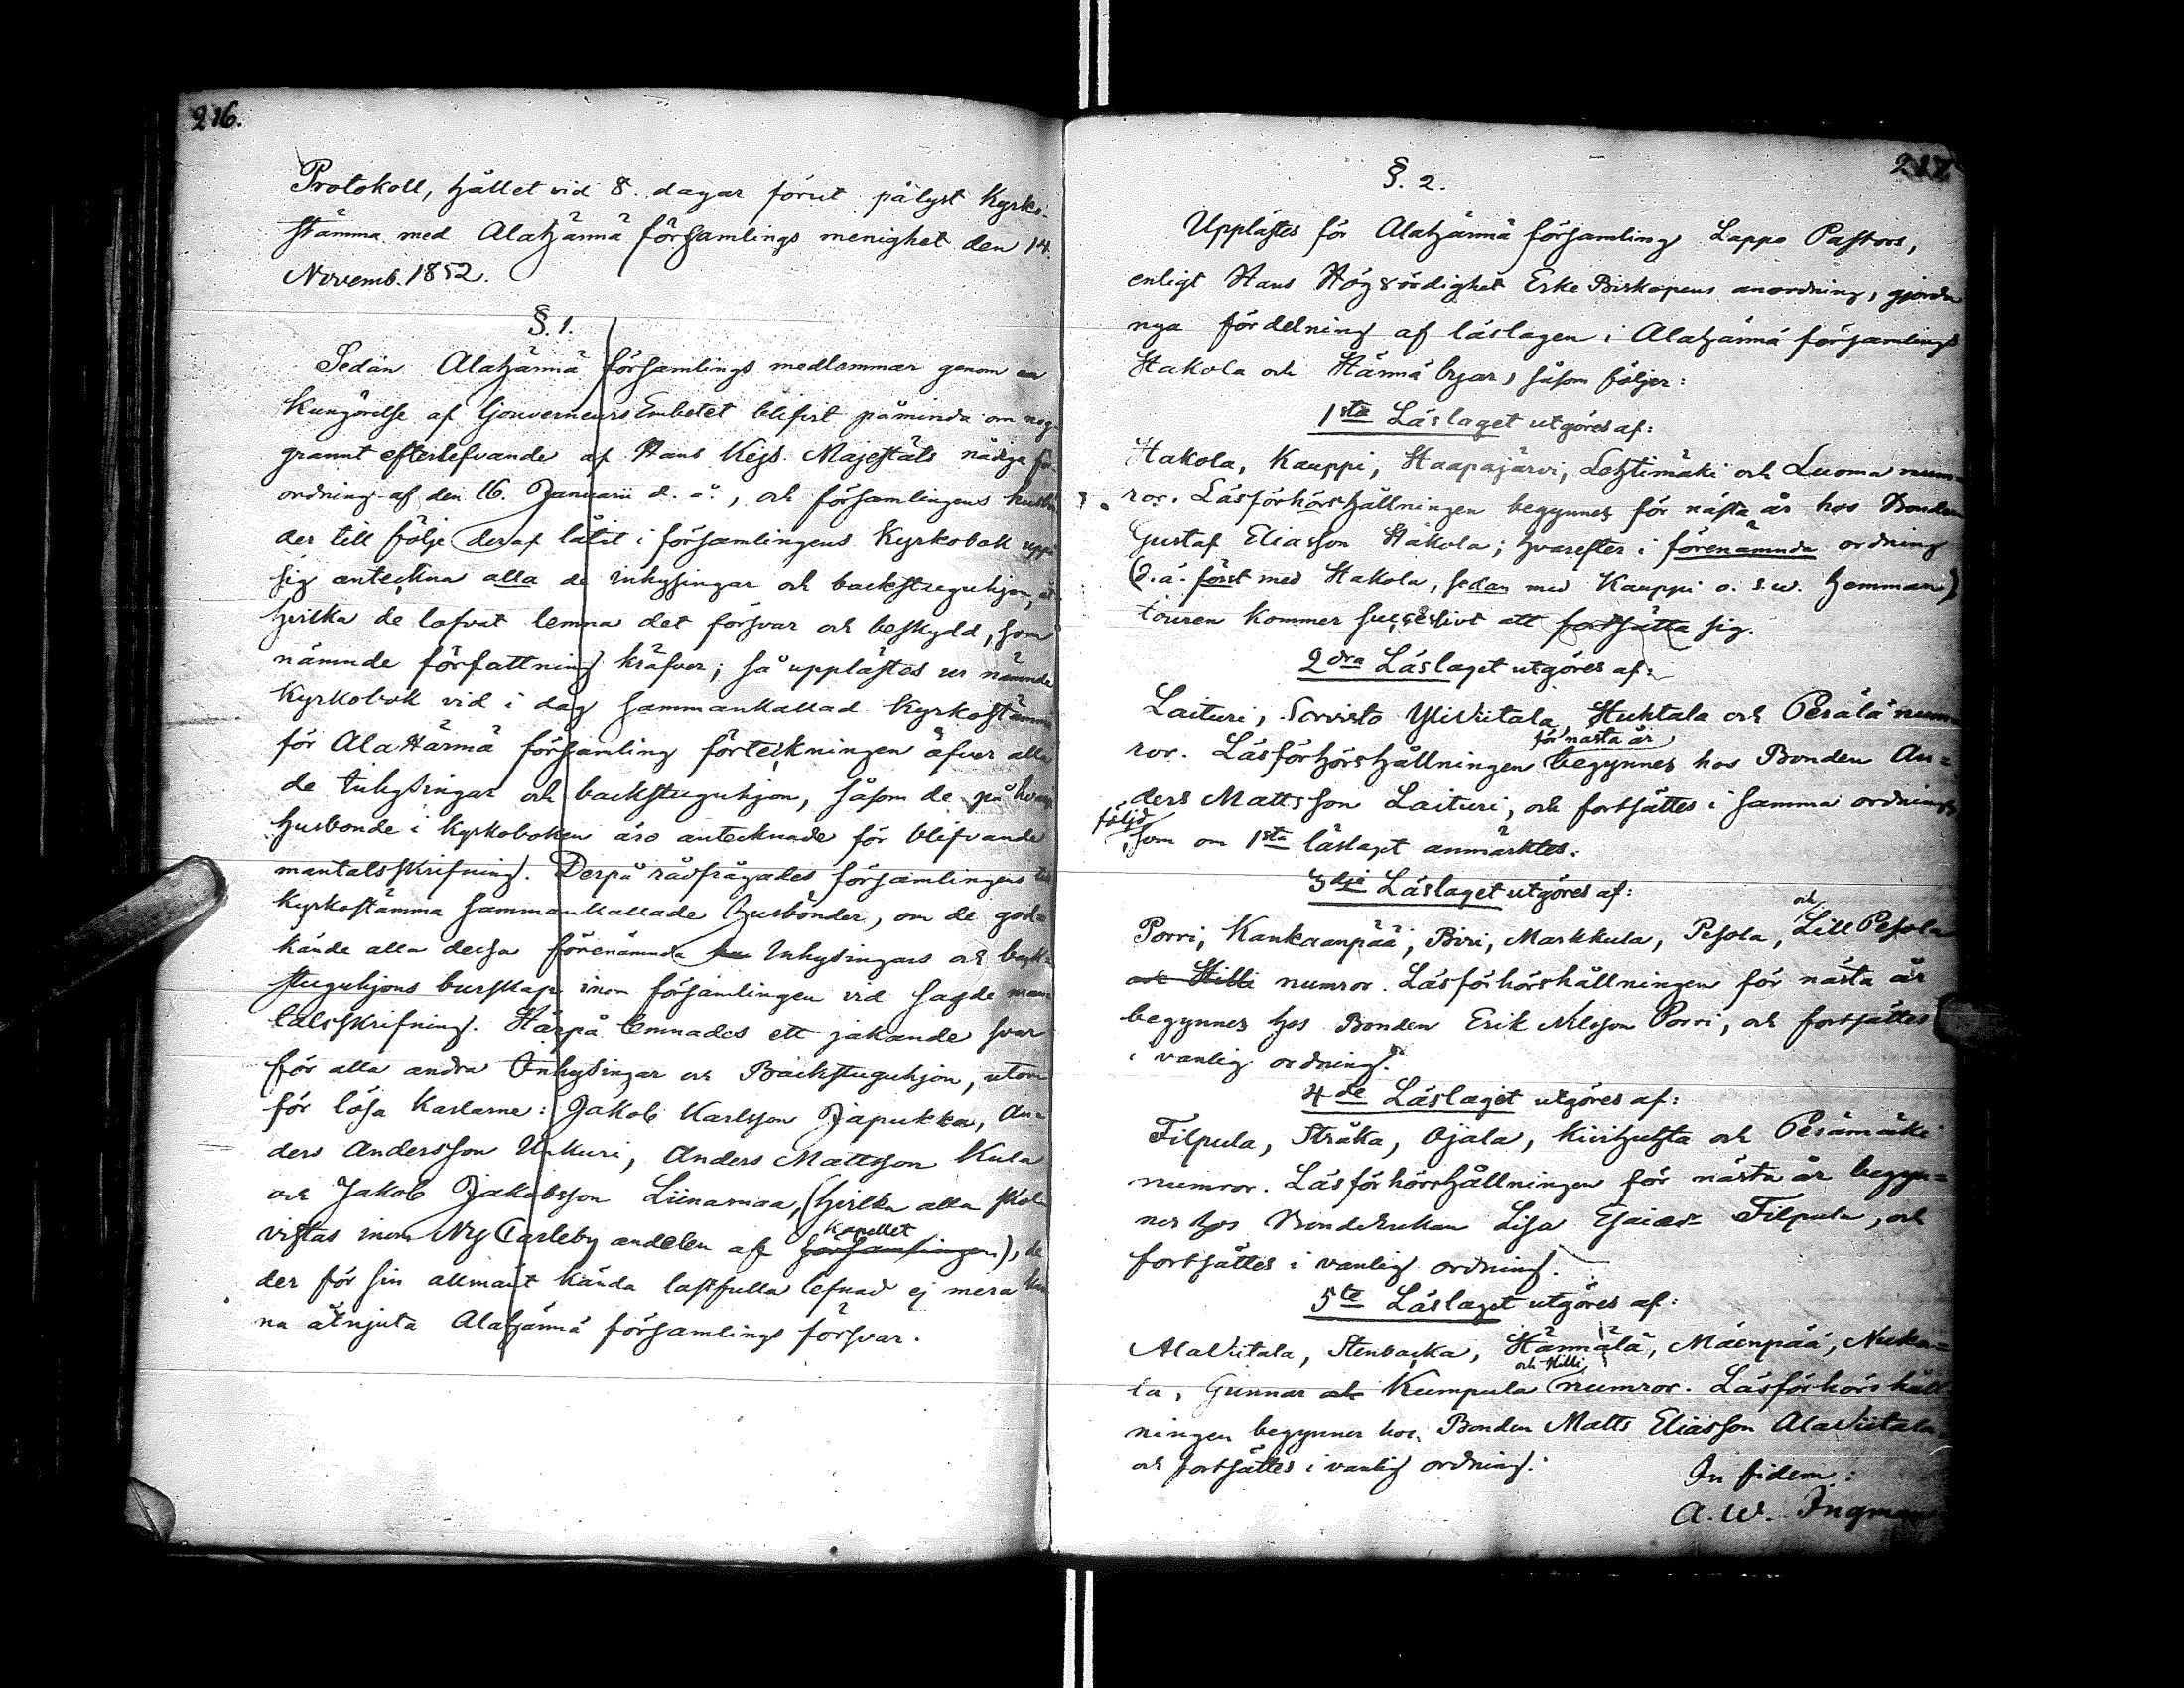 216.
Protokoll, hållet vid 8. dagar förut pålyst Kyrko-
stämma med Alahärmä församlings menighet den 14.
Novemb. 1852.
§. 1.
Sedan Alahärmä församlings medlemmar genom en
Kungörelse af Gouverneurs Embetet blifvit påminda om nog-
grannt efterlefvande af Hans Kejs. Majestäts nådiga för-
ordning af den 16. Januarii d. å., och församlingens husbön-
der till följe deraf låtit i församlingens Kyrkobok upp
sig anteckna alla de Inhysingar och backstuguhjon, åt
hvilka de lofvat lemna det försvar och beskydd, som
nämnde författning kräfver; så upplästes ur nämnde
Kyrkobok vid i dag sammankallad Kyrkostämma
för Ala Härmä församling förteckningen öfver alla
de Inhysingar och backstuguhjon, såsom de på hvarje
husbonde i Kyrkoboken äro antecknade för blifvande
mantalsskrifning. Derpå rådfrågades församlingens till
Kyrkostämma sammankallade husbönder, om de god-
kände alla dessa förenämnda Inhysingars och back-
stuguhjons burskap inom församlingen vid sagde man-
talsskrifning. Härpå lemnades ett jakande svar
för alla andra Inhysingar och Backstuguhjon, utom
för lösa Karlarne: Jakob Karlsson Japukka, An-
ders Andersson Unkuri, Anders Mattsson Kula
och Jakob Jakobsson Liinamaa, (hvilka alla skola
vistas inom Ny Carleby andelen af Kapellet församlingen), de
der för sin allmänt kända lastfulla lefnad ej mera kun-
na åtnjuta Alahärmä församlings försvar.
217.
§. 2.
Upplästes för Alahärmä församling Lappo Pastors,
enligt Hans Högvördighet Erke Biskopens anordning, gjorda
nya fördelning af läslagen i Alahärmä församlings
Hakola och Härmä byar, såsom följer:
1sta Läslaget utgöres af:
Hakola, Kauppi, Haapajärvi, Lehtimäki och Luoma num-
ror. Läsförhörshållningen begynnes för nästa år hos Bonden
Gustaf Eliasson Hakola; hvarefter i förenämnda ordning
(d.ä. först med Hakola, sedan med Kauppi o. s. w. hemman)
touren kommer successivt att fortsätta sig.
2dra Läslaget utgöres af:
Laituri, Sorvisto YliViitala, Huhtala och Perälä num-
ror. Läsförhörshållningen för nästa år begynnes hos Bonden An-
ders Mattsson Laituri, och fortsättes i samma ordnings
följd, som om 1sta läslaget anmärktes.
3dje Läslaget utgöres af:
Porri, Kankaanpää, Biri, Markkula, Pesola, och Lill Pesola
och Hilli numror. Läsförhörshållningen för nästa år
begynnes hos Bonden Erik Nilsson Porri, och fortsättes
i vanlig ordning.
4de Läslaget utgöres af:
Filpula, Stråka, Ojala, Kivihuhta och Perämäki
numror. Läsförhörshållningen för nästa år begyn-
nes hos Bondeenkan Lisa Esaiedr Filpula, och
fortsättes i vanlig ordning.
5te Läslaget utgöres af:
AlaViitala, Stenbacka, Härmälä, Mäenpää, Nuka-
la, Gunnar och Kumpula och Hilli numror. Läsförhörshåll-
ningen begynner hos Bonden Matts Eliasson AlaViitala
och fortsättes i vanlig ordning.
In fidem:
A. W. Ingman